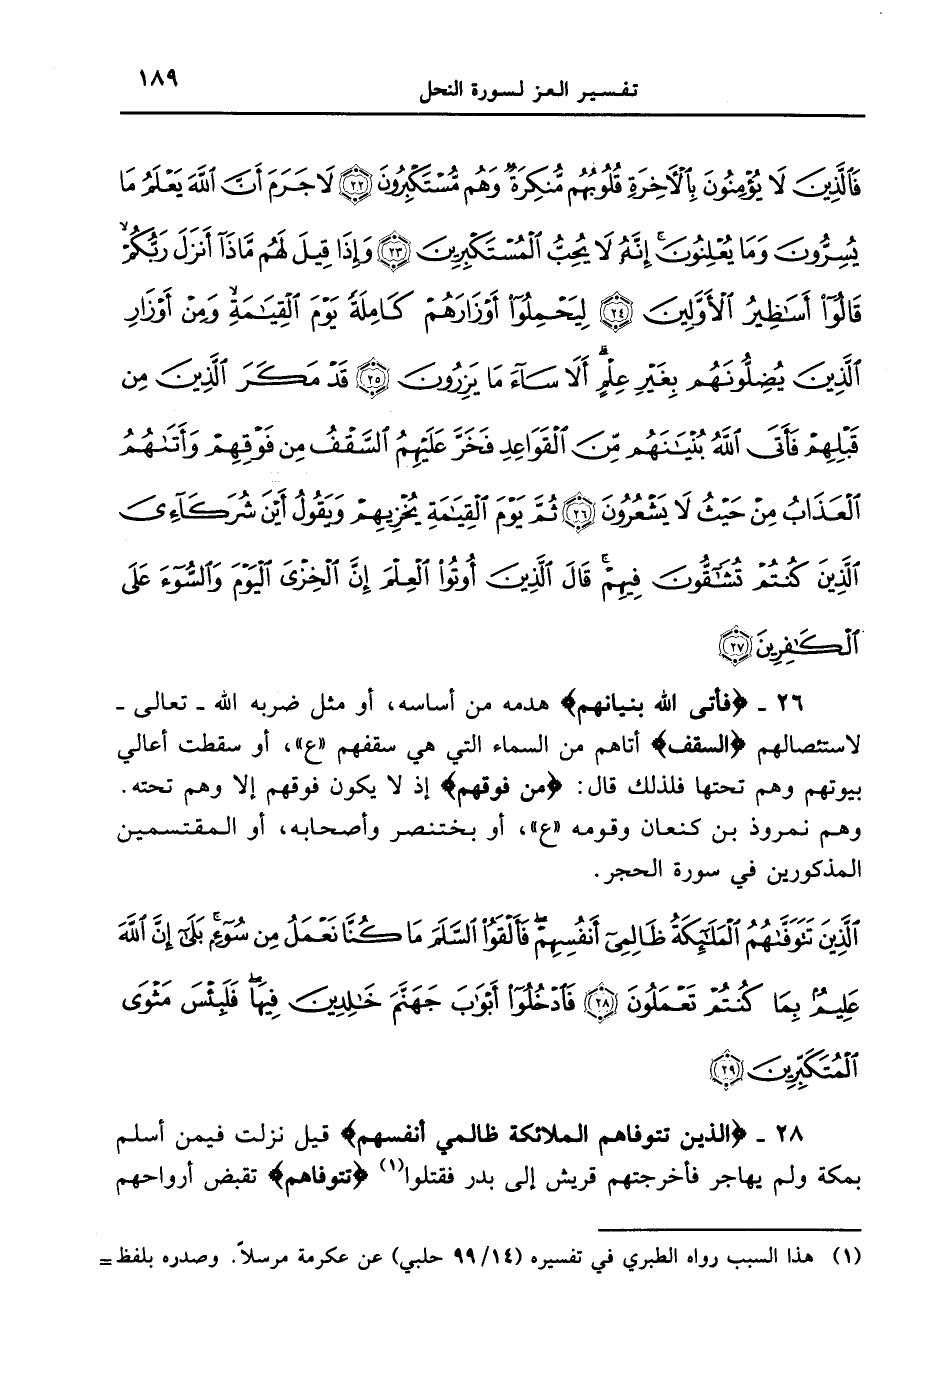 ١٨٩
تفسير العز لسورة النحل
فَٱلَّذِينَ لَا يُؤْمِنُونَ بِٱلْأَخِرَةِ قُلُوبُهُم مُّنكِرَةٌ وَهُم مُّسْتَكْبِرُونَ ﴿٢٢﴾ لَا جَرَمَ أَنَّ ٱللَّهَ يَعْلَمُ مَا
يُسِرُّونَ وَمَا يُعْلِنُونَ ۚ إِنَّهُۥ لَا يُحِبُّ ٱلْمُسْتَكْبِرِينَ ﴿٢٣﴾ وَإِذَا قِيلَ لَهُم مَّاذَآ أَنزَلَ رَبُّكُمْ ۙ
قَالُوٓا۟ أَسَٰطِيرُ ٱلْأَوَّلِينَ ﴿٢٤﴾ لِيَحْمِلُوٓا۟ أَوْزَارَهُمْ كَامِلَةً يَوْمَ ٱلْقِيَٰمَةِ ۙ وَمِنْ أَوْزَارِ
ٱلَّذِينَ يُضِلُّونَهُم بِغَيْرِ عِلْمٍ ۗ أَلَا سَآءَ مَا يَزِرُونَ ﴿٢٥﴾ قَدْ مَكَرَ ٱلَّذِينَ مِن
قَبْلِهِمْ فَأَتَى ٱللَّهُ بُنْيَٰنَهُم مِّنَ ٱلْقَوَاعِدِ فَخَرَّ عَلَيْهِمُ ٱلسَّقْفُ مِن فَوْقِهِمْ وَأَتَىٰهُمُ
ٱلْعَذَابُ مِنْ حَيْثُ لَا يَشْعُرُونَ ﴿٢٦﴾ ثُمَّ يَوْمَ ٱلْقِيَٰمَةِ يُخْزِيهِمْ وَيَقُولُ أَيْنَ شُرَكَآءِىَ
ٱلَّذِينَ كُنتُمْ تُشَٰٓقُّونَ فِيهِمْ ۚ قَالَ ٱلَّذِينَ أُوتُوا۟ ٱلْعِلْمَ إِنَّ ٱلْخِزْىَ ٱلْيَوْمَ وَٱلسُّوٓءَ عَلَى
ٱلْكَٰفِرِينَ ﴿٢٧﴾
٢٦ ـ ﴿فأتى الله بنيانهم﴾ هدمه من أساسه، أو مثل ضربه الله ـ تعالى ـ
لاستئصالهم ﴿السقف﴾ أتاهم من السماء التي هي سقفهم «ع»، أو سقطت أعالي
بيوتهم وهم تحتها فلذلك قال: ﴿من فوقهم﴾ إذ لا يكون فوقهم إلا وهم تحته.
وهم نمروذ بن كنعان وقومه «ع»، أو بختنصر وأصحابه، أو المقتسمين
المذكورين في سورة الحجر.
ٱلَّذِينَ تَتَوَفَّىٰهُمُ ٱلْمَلَٰٓئِكَةُ ظَالِمِىٓ أَنفُسِهِمْ ۖ فَأَلْقَوُا۟ ٱلسَّلَمَ مَا كُنَّا نَعْمَلُ مِن سُوٓءٍۭ ۚ بَلَىٰٓ إِنَّ ٱللَّهَ
عَلِيمٌۢ بِمَا كُنتُمْ تَعْمَلُونَ ﴿٢٨﴾ فَٱدْخُلُوٓا۟ أَبْوَٰبَ جَهَنَّمَ خَٰلِدِينَ فِيهَا ۖ فَلَبِئْسَ مَثْوَى
ٱلْمُتَكَبِّرِينَ ﴿٢٩﴾
٢٨ ـ ﴿الذين تتوفاهم الملائكة ظالمي أنفسهم﴾ قيل نزلت فيمن أسلم
بمكة ولم يهاجر فأخرجتهم قريش إلى بدر فقتلوا(١) ﴿تتوفاهم﴾ تقبض أرواحهم
(١) هذا السبب رواه الطبري في تفسيره (٩٩/١٤ حلبي) عن عكرمة مرسلاً. وصدره بلفظ =